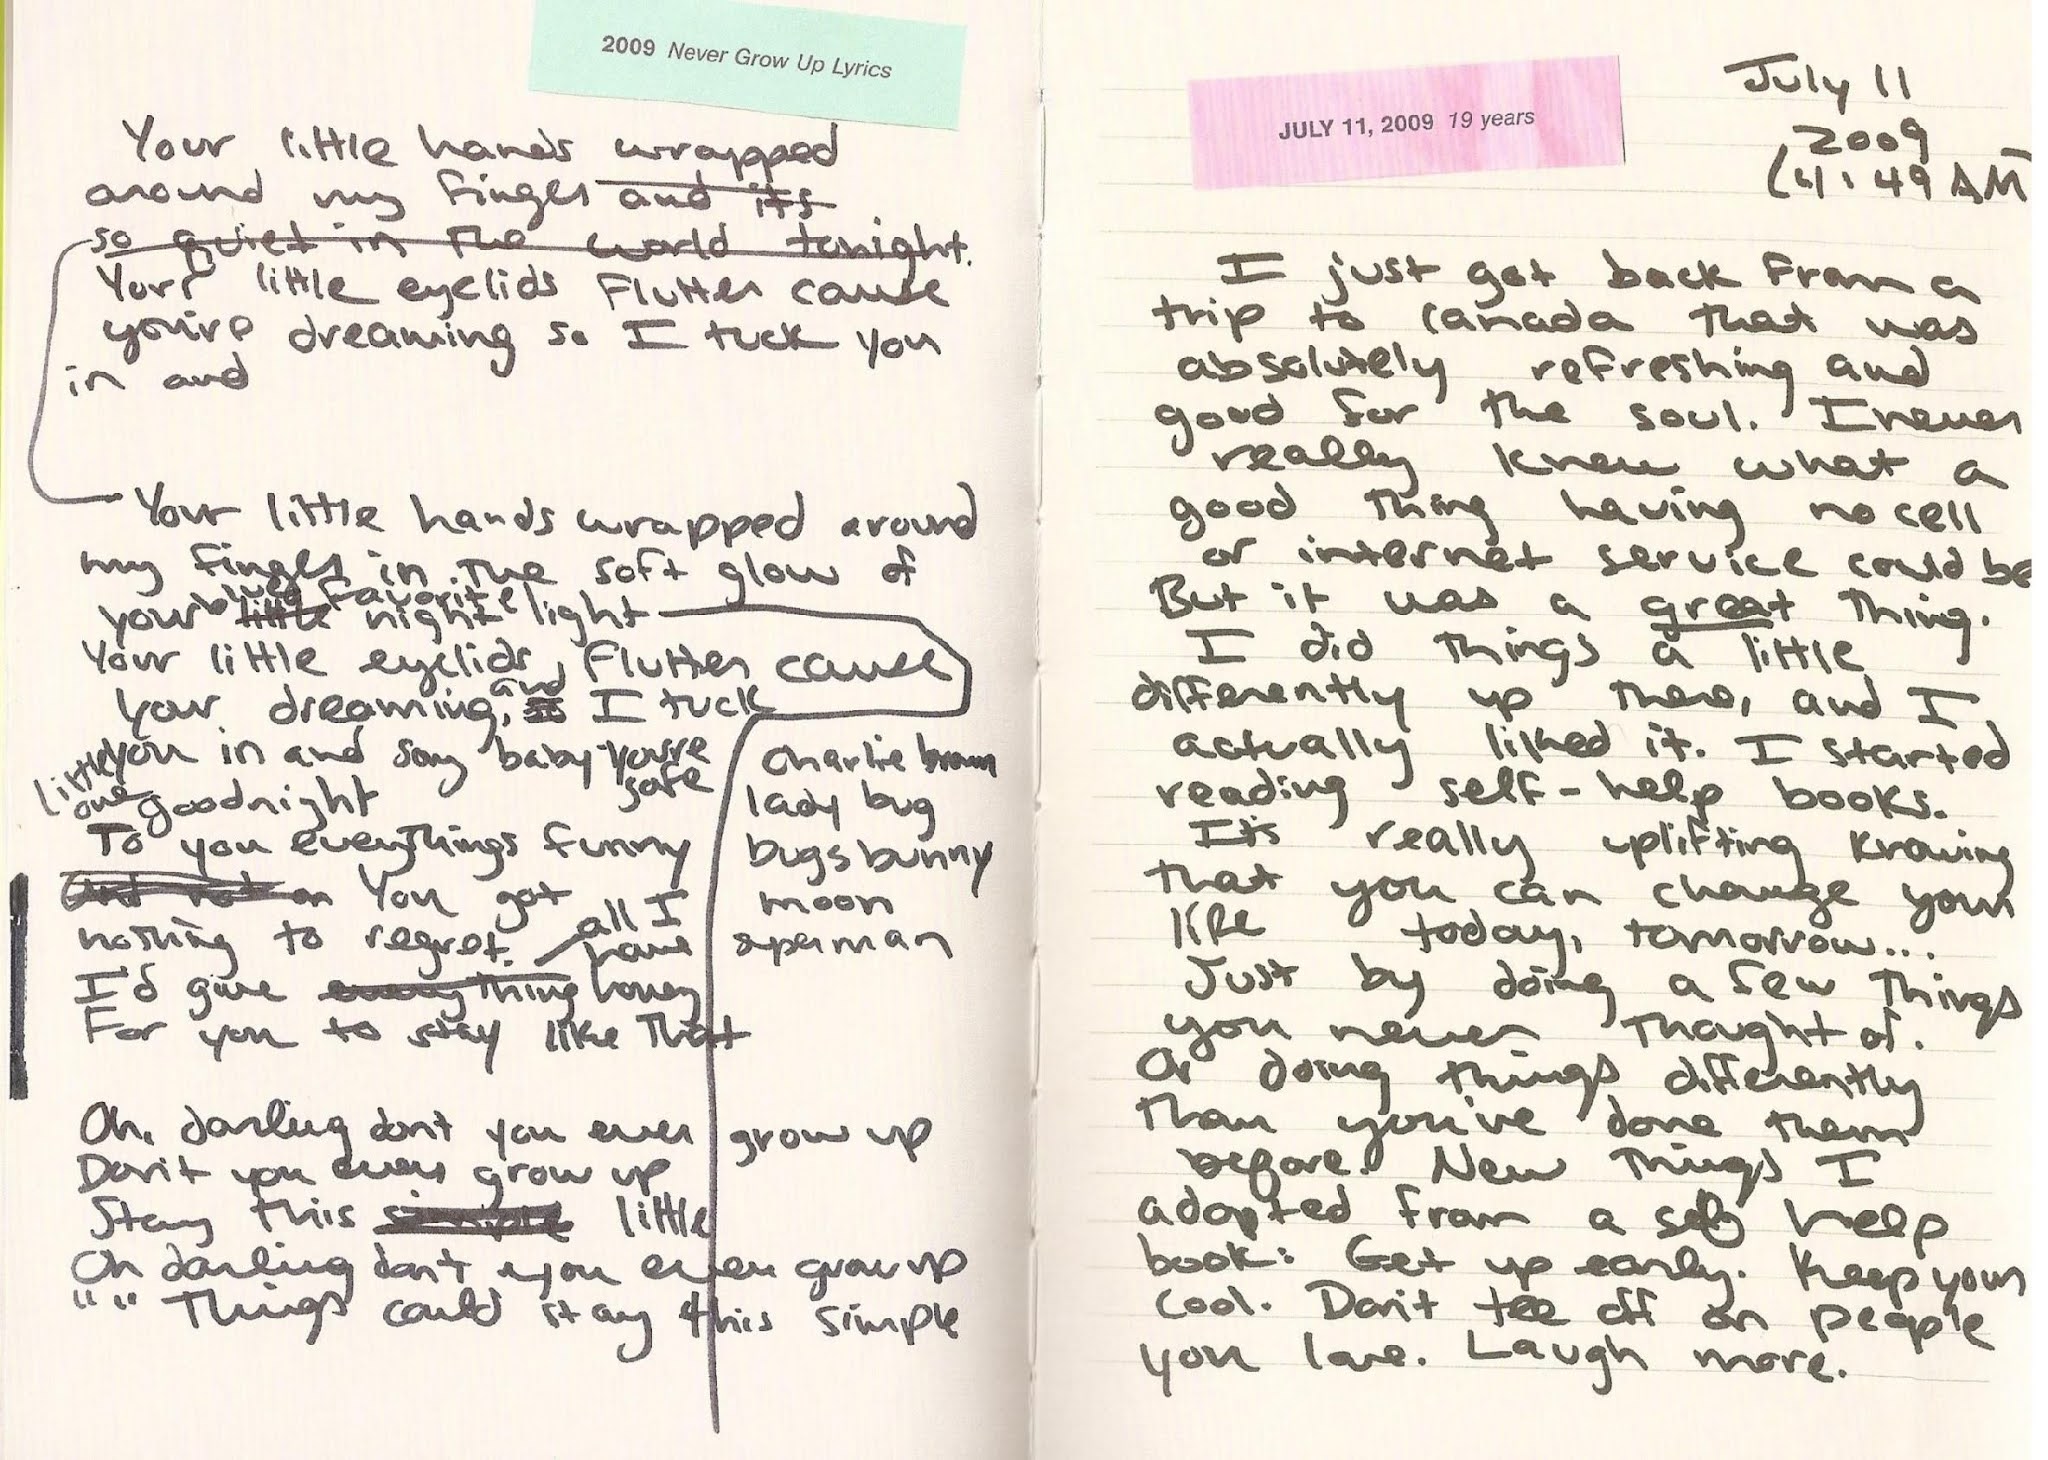 2009 Never Grow Up Lyrics
Your little hands wrapped
around my finger and its
so quiet in the world tonight.
Your little eyelids flutter cause
you're dreaming so I tuck you
in and
Your little hands wrapped around
my finger in the soft glow of
favorite
your little night light
Your little eyelids flutter cause
your dreaming, and so I tuck
you in and say baby you're
safe
little
one
goodnight
To you everythings funny
on You got
nothing to regret. all I
have
I'd give everything honey
For you to stay like that
Charlie brown
lady bug
bugs bunny
moon
superman
Oh, darling don't you ever grow up
Don't you ever grow up
Stay this simple little
Oh darling don't you ever grow up
" " Things could stay this simple
JULY 11, 2009 19 years
July 11
2009
4:49 AM
I just got back from a
trip to Canada that was
absolutely refreshing and
good for the soul. I never
really knew what a
good thing having no cell
or internet service could be
But it was a great thing.
I did things a little
differently up there, and I
actually liked it. I started
reading self-help books.
It's really uplifting knowing
that you can change your
life today, tomorrow...
Just by doing a few things
you never thought of.
Or doing things differently
than you've done them
before. New things I
adopted from a self help
book: Get up early. Keep your
cool. Don't tee off on people
you love. Laugh more.